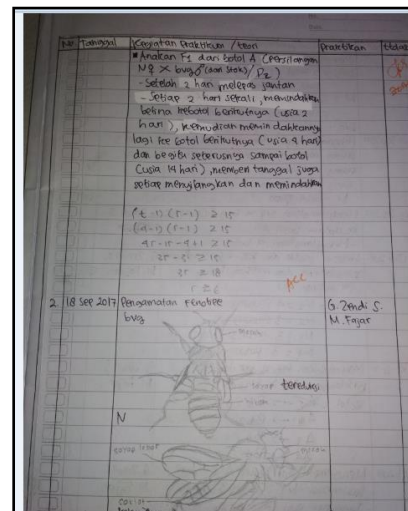 No Tanggal Kegiatan Praktikum / teori Praktikan ttdas
Anakan F1 dari botol A (Persilangan
N♀ × bvg♂ (dari Stok) / P2)
- Setelah 2 hari melepas jantan
- Setiap 2 hari sekali, memindahkan
betina kebotol berikutnya (usia 2
hari), kemudian memindahkannya
lagi ke botol berikutnya (usia 4 hari)
dan begitu seterusnya sampai botol
(usia 14 hari), memberi tanggal juga
setiap menyilangkan dan memindahkan
(t-1) (r-1) ≥ 15
(4-1) (r-1) ≥ 15
3r ≥ 18
r ≥ 6
ACC
2. 18 Sep 2017 Pengamatan Fenotipe G. Zendi S.
bvg M. Fajar
merah
sayap tereduksi
hitam
N
sayap lebar
coklat